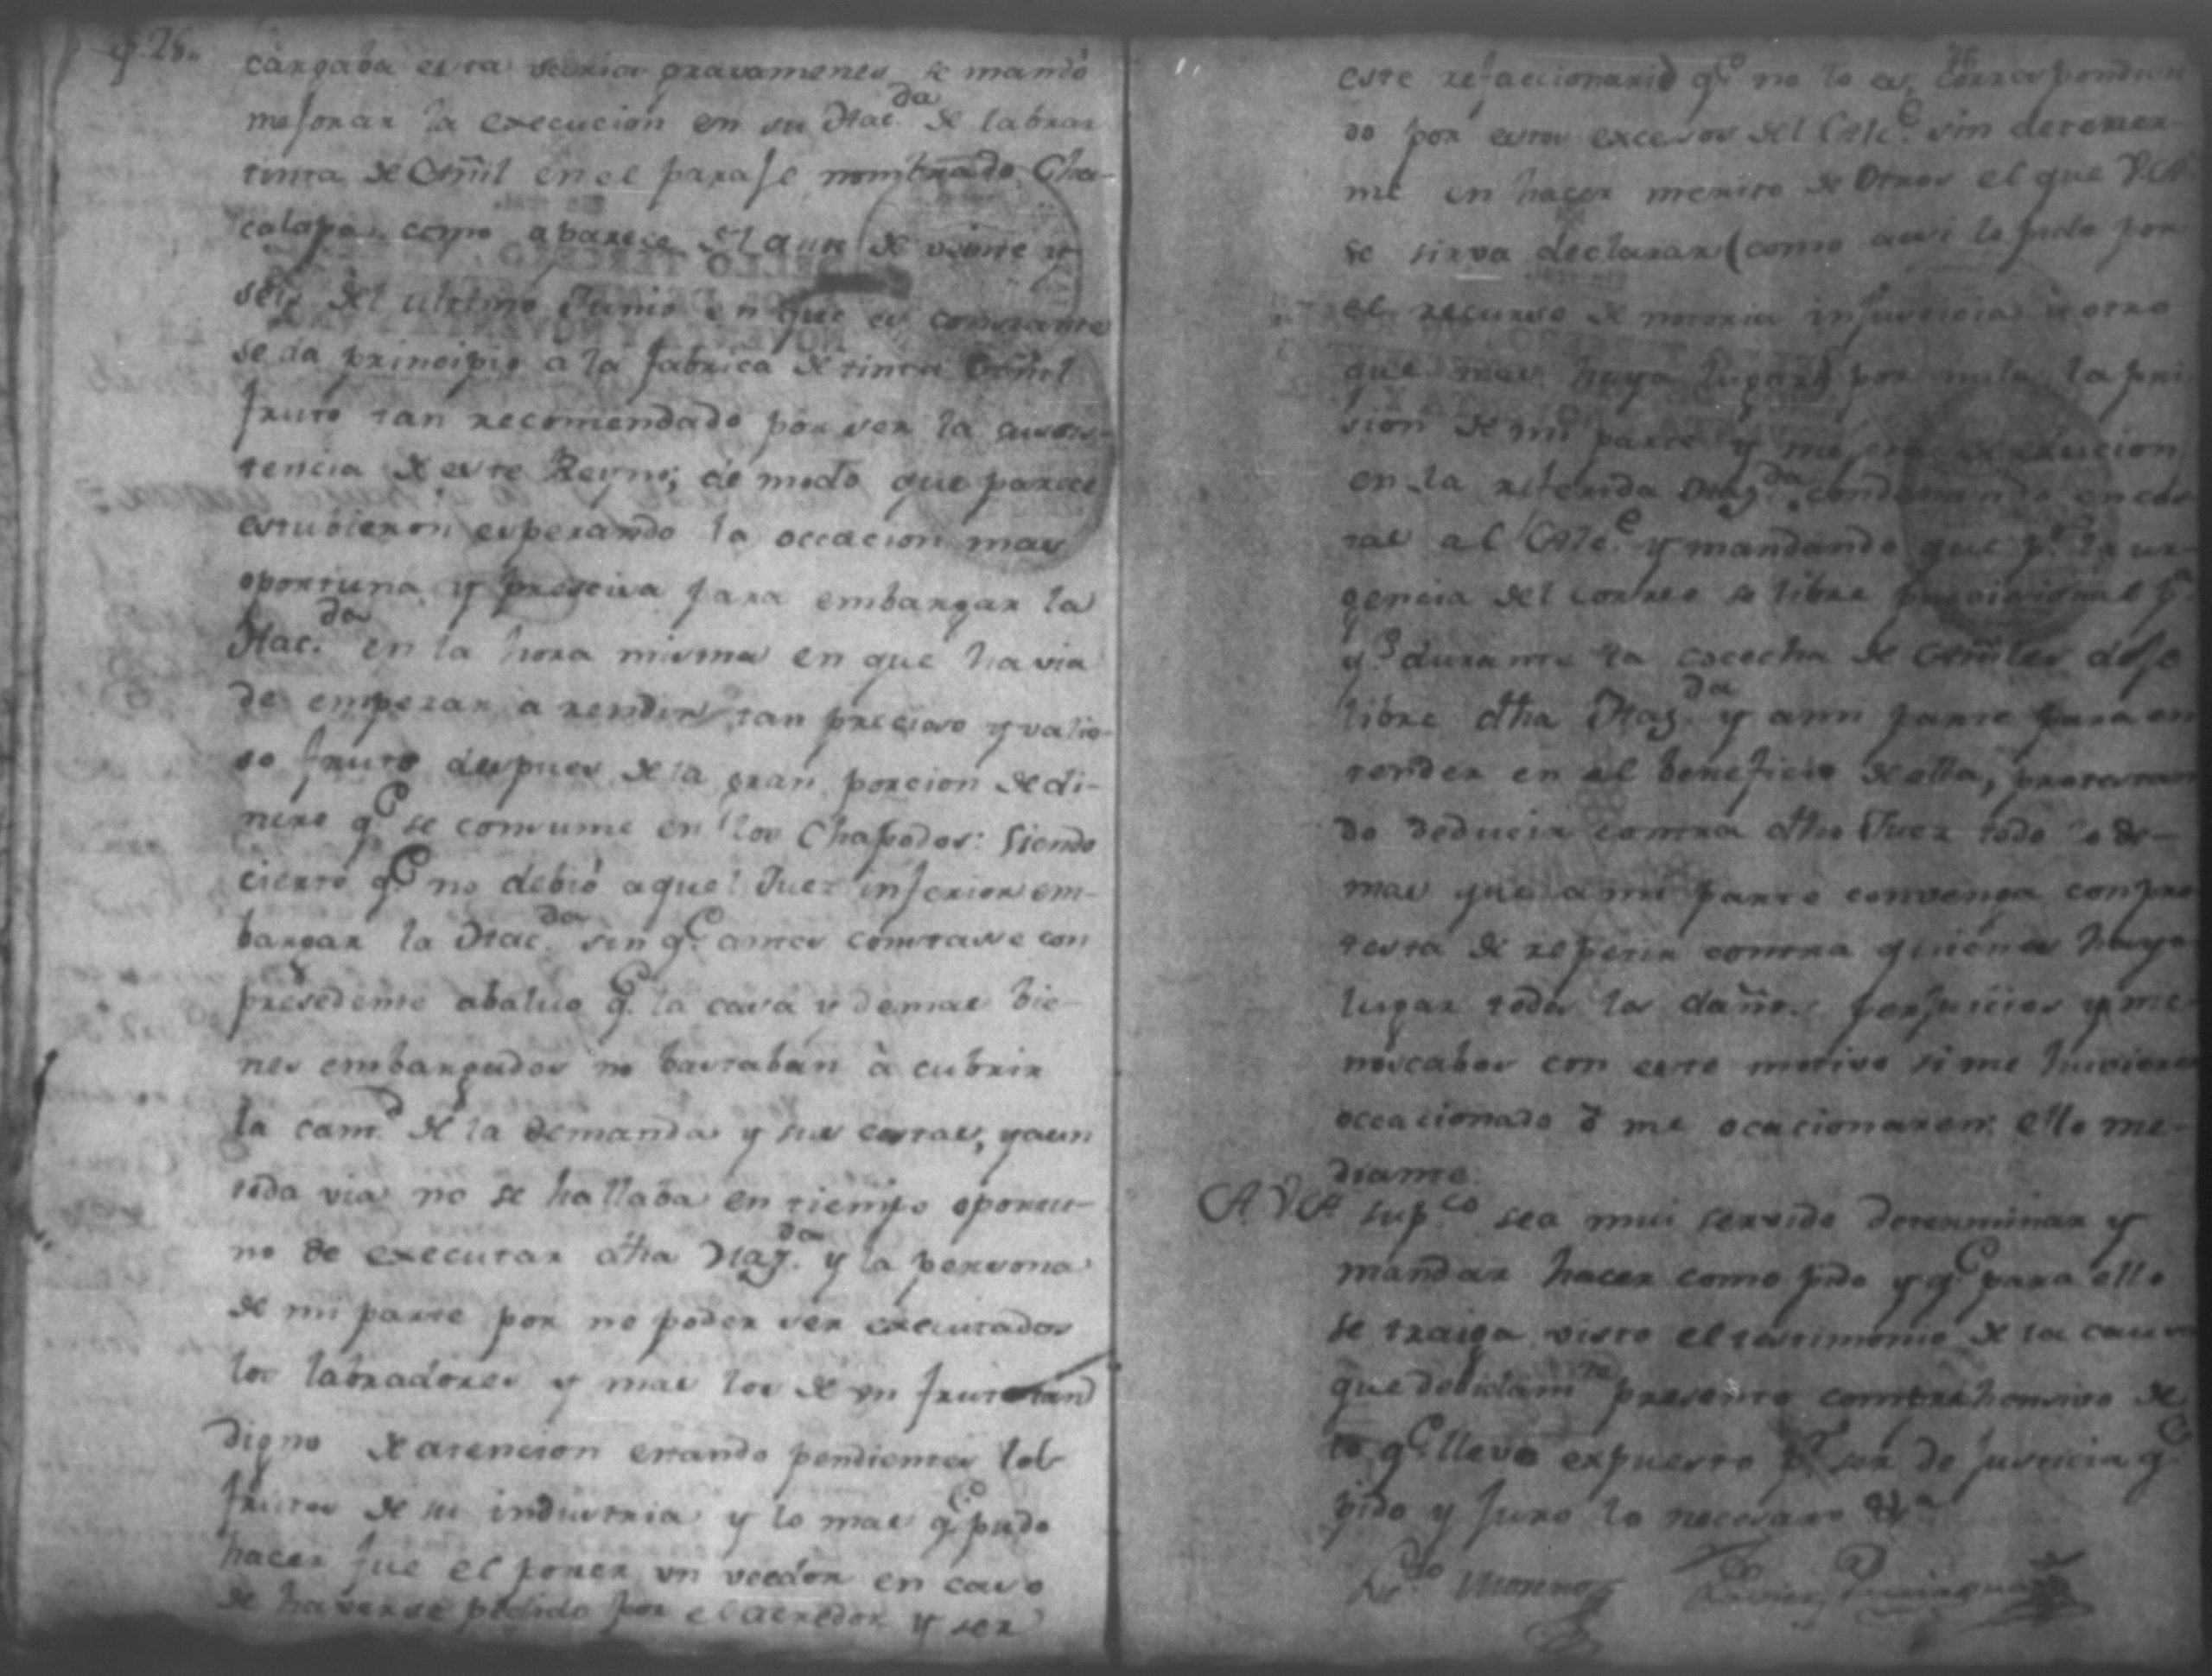 cargaba esta gravamenes se mandó
mejorar la execucion en su Hac.da de labrar
tinta de Añil en el paraje nombrado Cha-
calapa como aparece del auto de veinte y
seis del ultimo Junio en que es constante
se da principio a la fabrica de tinta Añil
fruto tan recomendado por ser la subsis-
tencia de este Reyno; de modo que parece
estubieron esperando la occacion mas
oportuna y precisa para embargar la
Hac.da en la hora misma en que havia
de empezar a rendir tan precioso y valio-
so fruto despues de la gran porcion de di-
nero q.e se consume en los Chapodos: Siendo
cierto q.e no debió aquel Juez inferior em-
bargar la Hac.da sin q.e antes constasse con
presedente abaluo q.e la casa y demas bie-
nes embargados no bastaban à cubrir
la cant.d de la demanda y sus costas, y aun
toda via no se hallaba en tiempo oportu-
no de executar dha Haz.da y la persona
de mi parte por no poder ser executados
los labradores y mas los de un fruto tan
digno de atencion estando pendientes los
frutos de su industria y lo mas q.e pudo
hacer fue el poner un veedor en caso
de haverse pedido por el acredor y ser
76
este refaccionario q.e no lo es, correspondien
do por estos excesos del Alc.e sin detener-
me en hacer merito de otros el que V.A.
se sirva declarar (como assi lo pido por
el recurso de notoria injusticia ù otro
que mas haya lugar) por nula la pri
sion de mi parte y mejora de execucion
en la referida Haz.da condenando en cos
tas al Alc.e y mandando que p.r la ur-
gencia del correo se libre provicional p.a
q.e durante la cosecha de Añiles deje
libre dha Haz.da y a mi parte para en
tender en el beneficio de ella, protestan
do deducir contra dho Juez todo lo de-
mas que a mi parte convenga con pro
testa de repetir contra quienes haya
lugar todos los daños perjuicios y me
noscabos con este motivo si me huviere
occacionado ò me ocacionaren: ello me-
diante.
A. V. A. sup.co sea mui servido determinar y
mandar hacer como pido y q.e para ello
se traiga visto el testimonio de la causa
que debidam.te presento comprehensivo de
lo q.e llevo expuesto p.r ser de justicia q.e
pido y juro lo necesario &.a